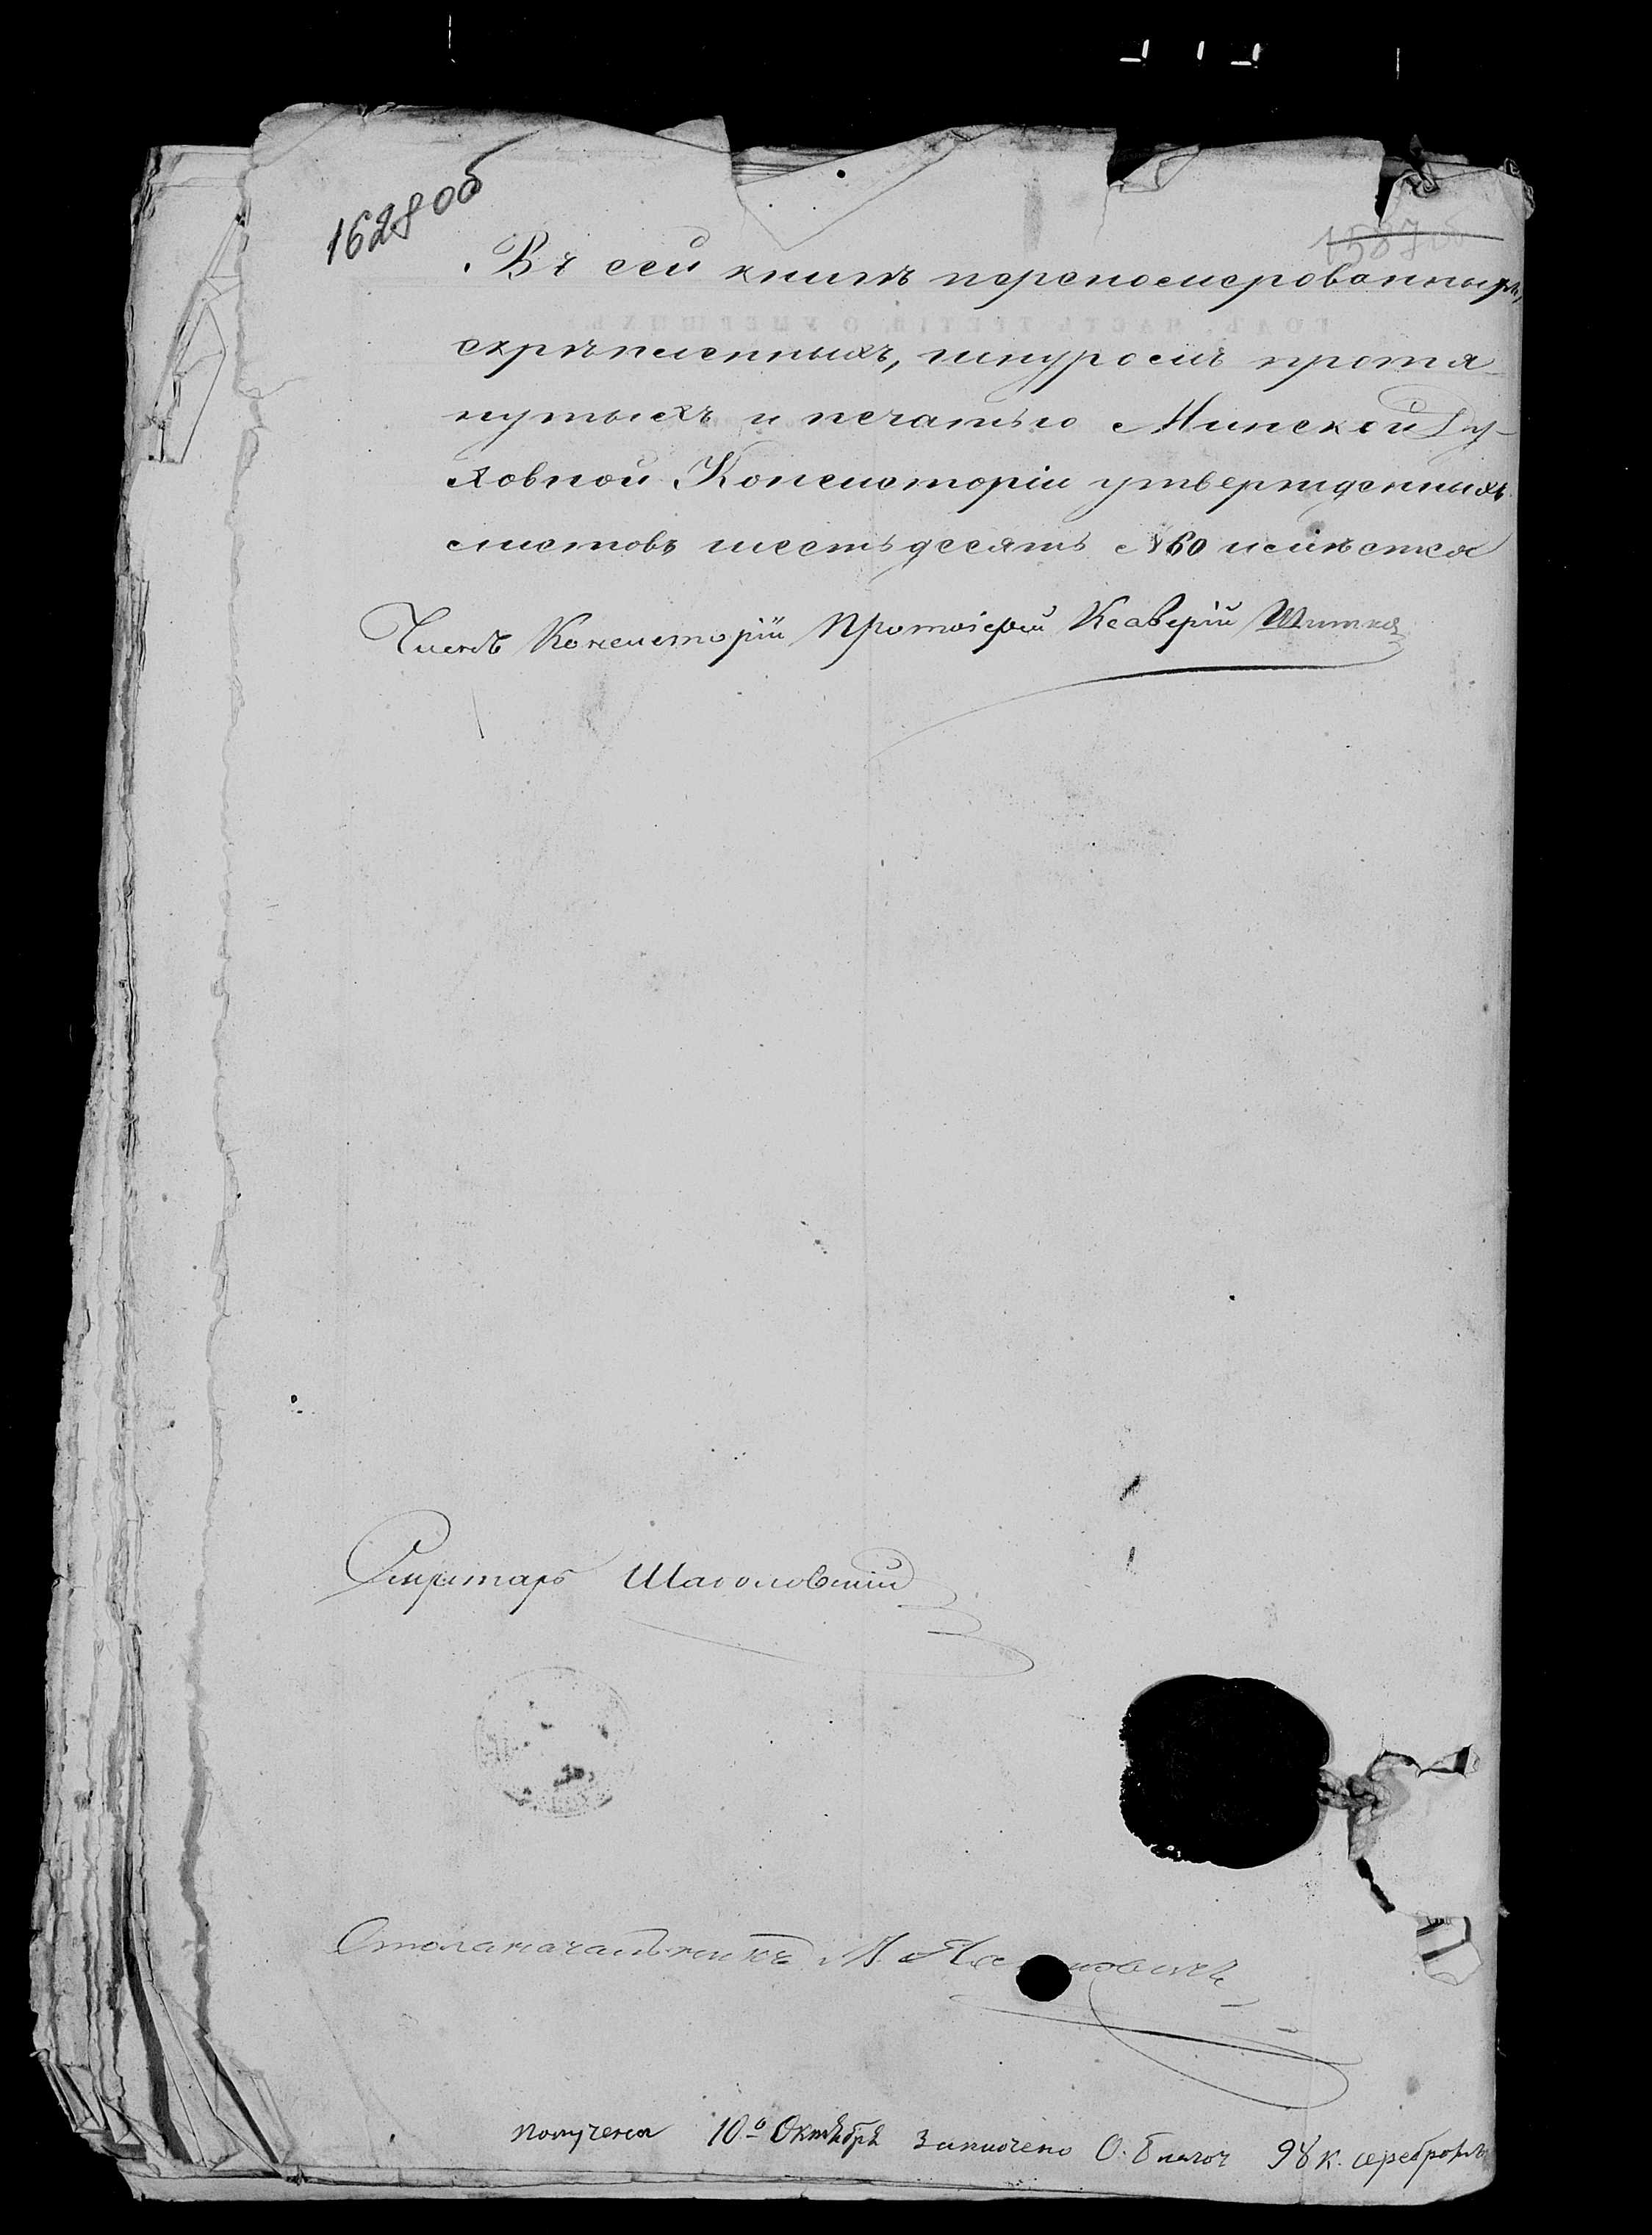 1628 об
1587 об
Въ сей книгѣ перенумерованныхъ,
скрѣпленныхъ, шнуромъ протя-
нутыхъ и печатью Минской Ду-
ховной Консисторіи утвержденныхъ
листовъ шестьдесятъ №60 имѣется
Членъ Консисторіи Протоіерей Ксаверій
Секретарь
Столоначальникъ
Получена 10го Октября Заплочено О. Благоч 98 к. серебромъ